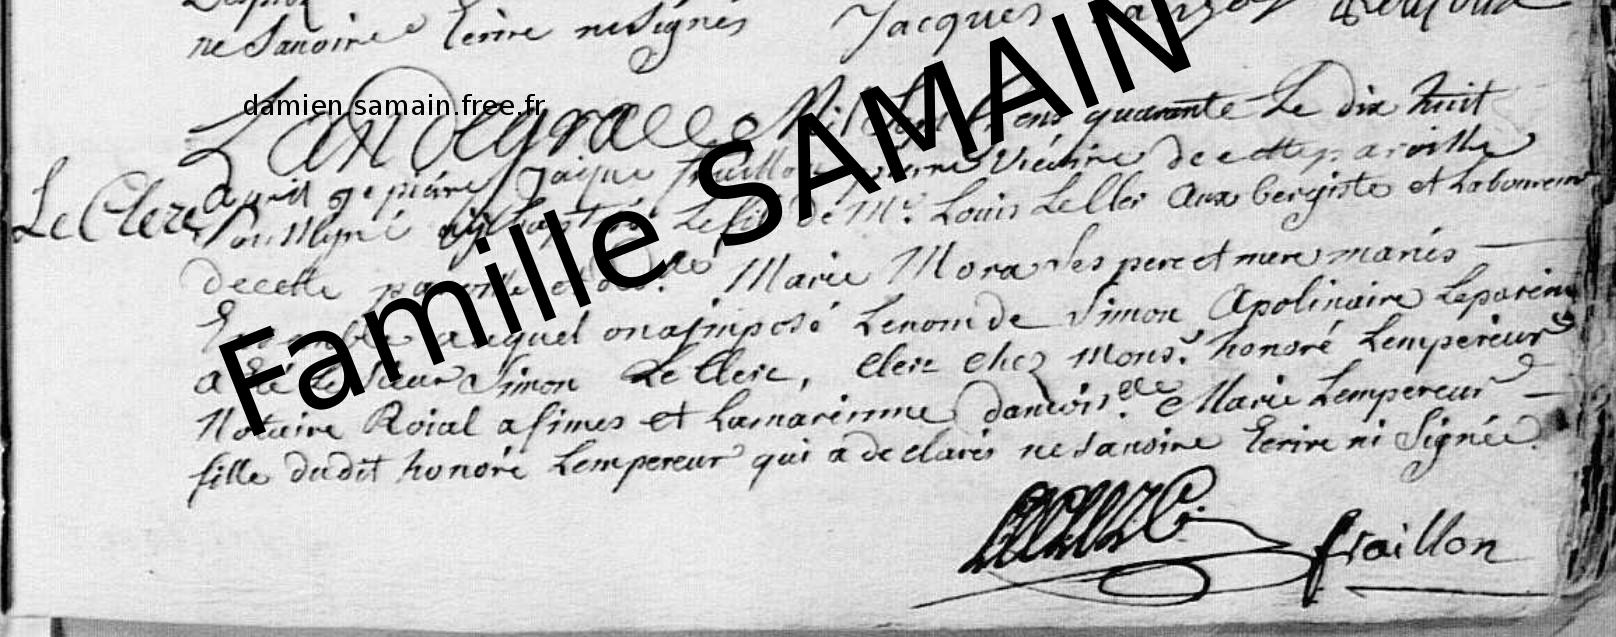 ne sanoire Ecrire ne Signés Jacques
damien.samain.free.fr
Famille SAMAIN
L'an de grace Mil Sept Cens quarante Le dix huit
avril je pierre Jaque fraillon pretre Vicaire de cette paroisse
LeClerc
Soussigné ay baptisé Le fils de Mr. Louis LeClerc Aubergiste et Laboureur
de cette paroisse et de d.lle Marie Mora Ses pere et mere mariés
Ensemble auquel on a imposé Le nom de Simon Apolinaire Le parein
a Eté Le Sieur Simon Le Clerc, Clerc chez Monsr. honoré Lempereur
Notaire Roial a fimes et La mareinne damoislle. Marie Lempereur
fille dudit honoré Lempereur qui a declarés ne sanoire Ecrire ni Signée.
fraillon